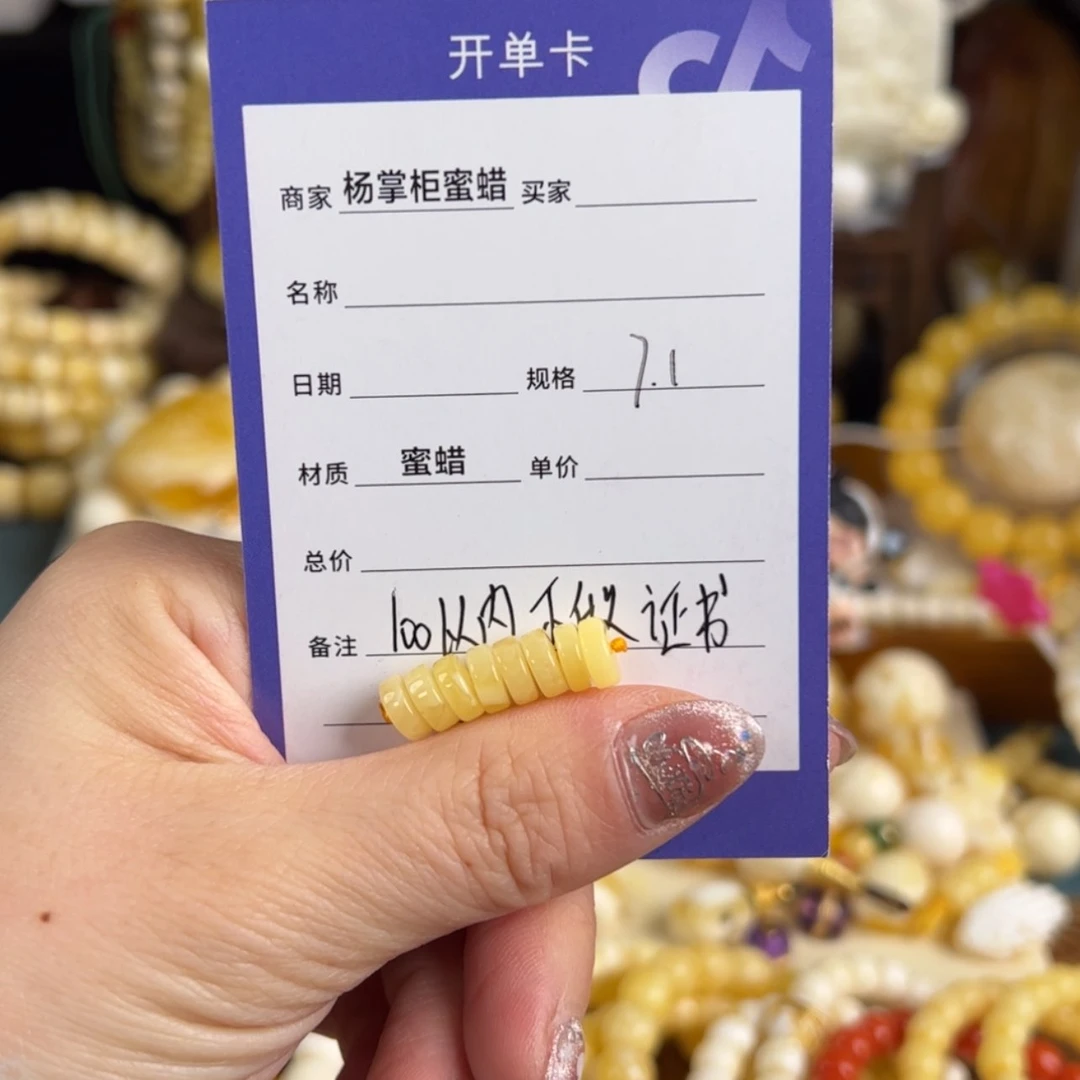 开单卡
商家 杨掌柜蜜蜡 买家
名称
日期 规格 7.1
材质 蜜蜡 单价
总价
备注 100以内不做证书